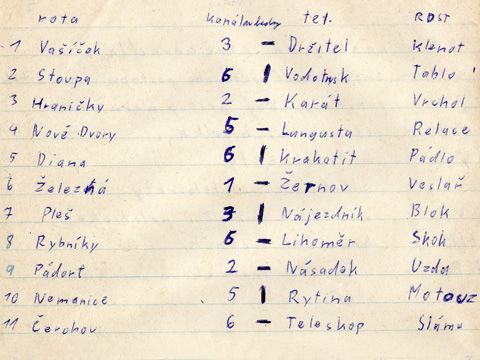 rota kanál tel. RDST
1 Vašíček 3 – Držitel Klenot
2 Stoupa 6 | Vodotrysk Tablo
3 Hraničky 2 – Karát Vrchol
4 Nové Dvory 5 – Langusta Relace
5 Diana 6 | Krakatit Pádlo
6 Železná 1 – Žernov Veslař
7 Pleš 3 | Nájezdník Blok
8 Rybníky 6 – Lihoměr Skok
9 Pádort 2 – Násadek Uzda
10 Nemanice 5 | Rytina Motouz
11 Čerchov 6 – Teleskop Sláma